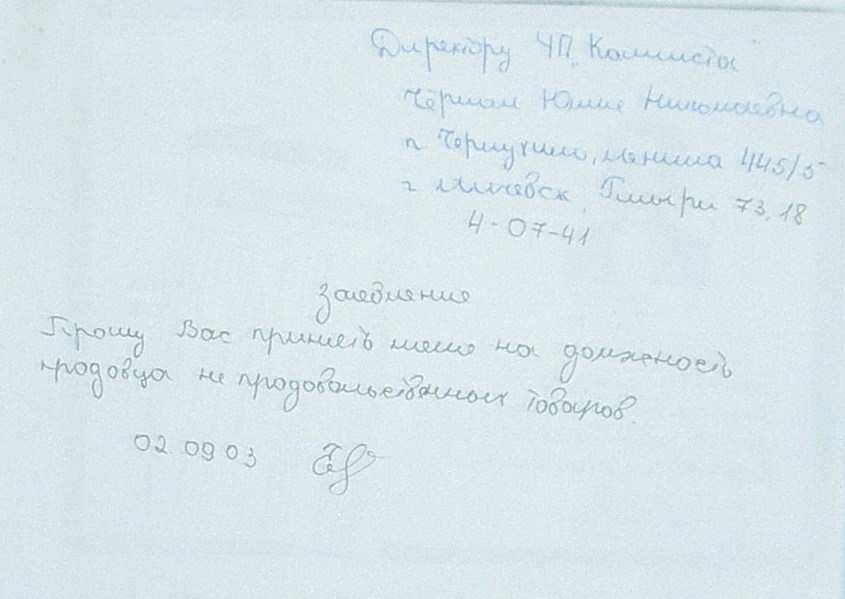 Директору ЧП "Каммиста"
Черман Юлие Николаевна
п. Чернухино, Ленина 445/5
г Алчевск, Гмыри 73, 18
4-07-41
Заевление
Прошу Вас принять меня на должность
продовца не продовольственных товаров.
02 09 03